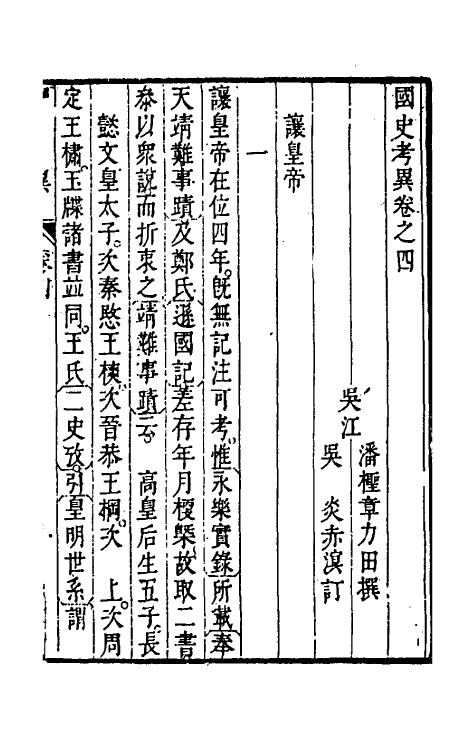 國史考異卷之四
吳江
潘檉章力田撰
吳炎赤溟訂
讓皇帝
一
讓皇帝在位四年。旣無記注可考。惟永樂實錄所載奉
天靖難事蹟及鄭氏遜國記差存年月梗槩。故取二書
叅以衆說而折衷之靖難事蹟云。高皇后生五子。長
懿文皇太子。次秦愍王樉。次晉恭王棡。次上。次周
定王橚。玉牒諸書並同。王氏二史攷引皇明世系謂